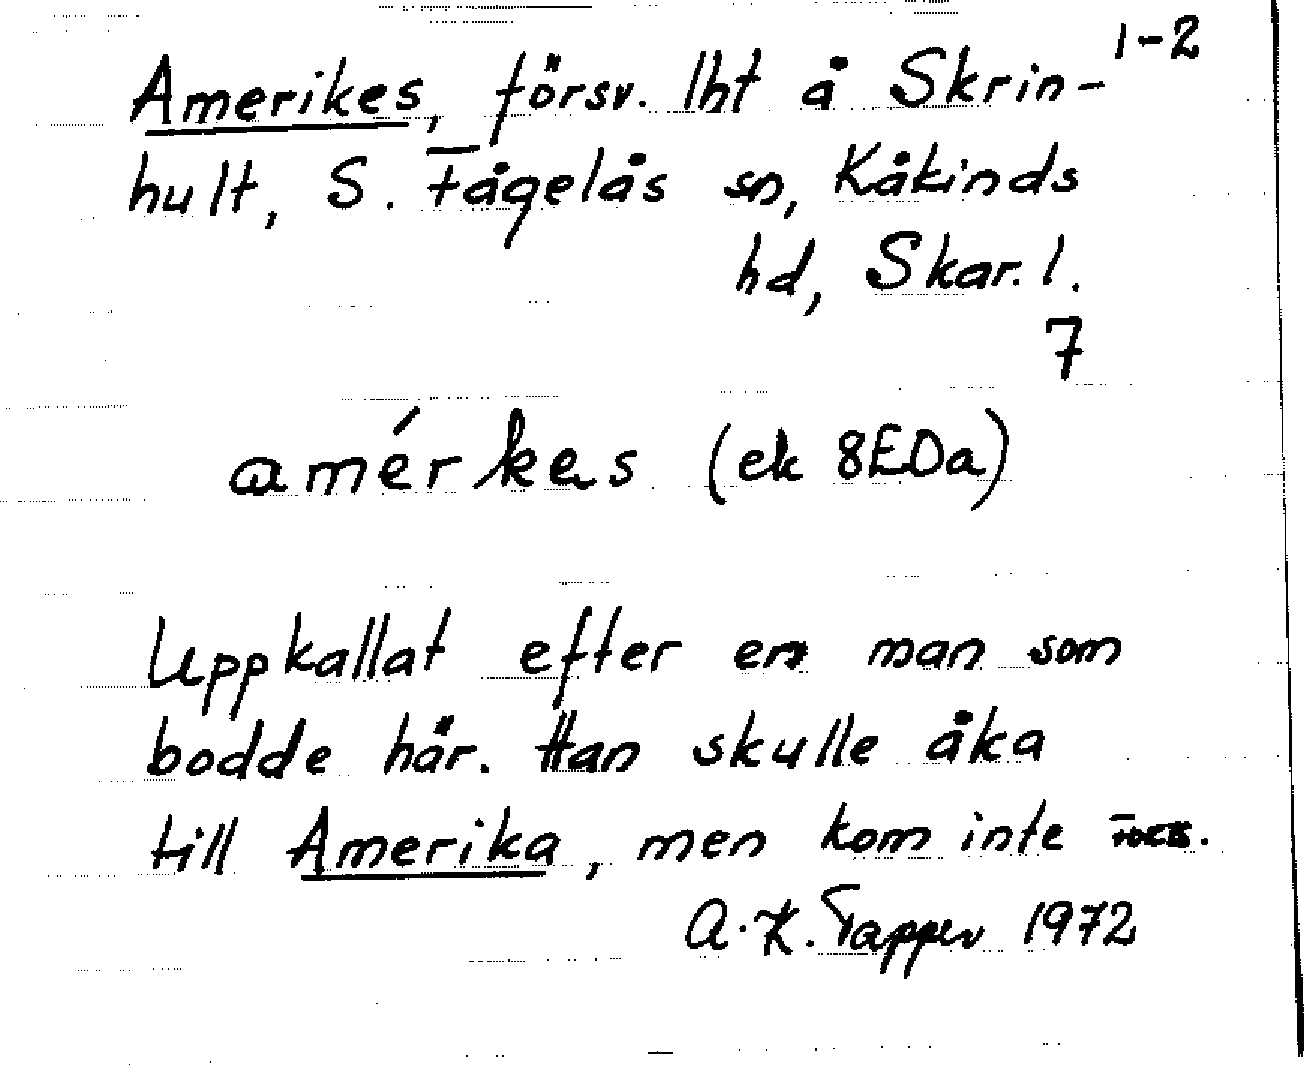 Amerikes, försv. lht å Skrin- 1-2
hult, S. Fågelås sn, Kåkinds
hd, Skar. l.
7
amérkes (ek 8EDa)
Uppkallat efter en man som
bodde här. Han skulle åka
till Amerika, men kom inte
A.K. Tapper 1972